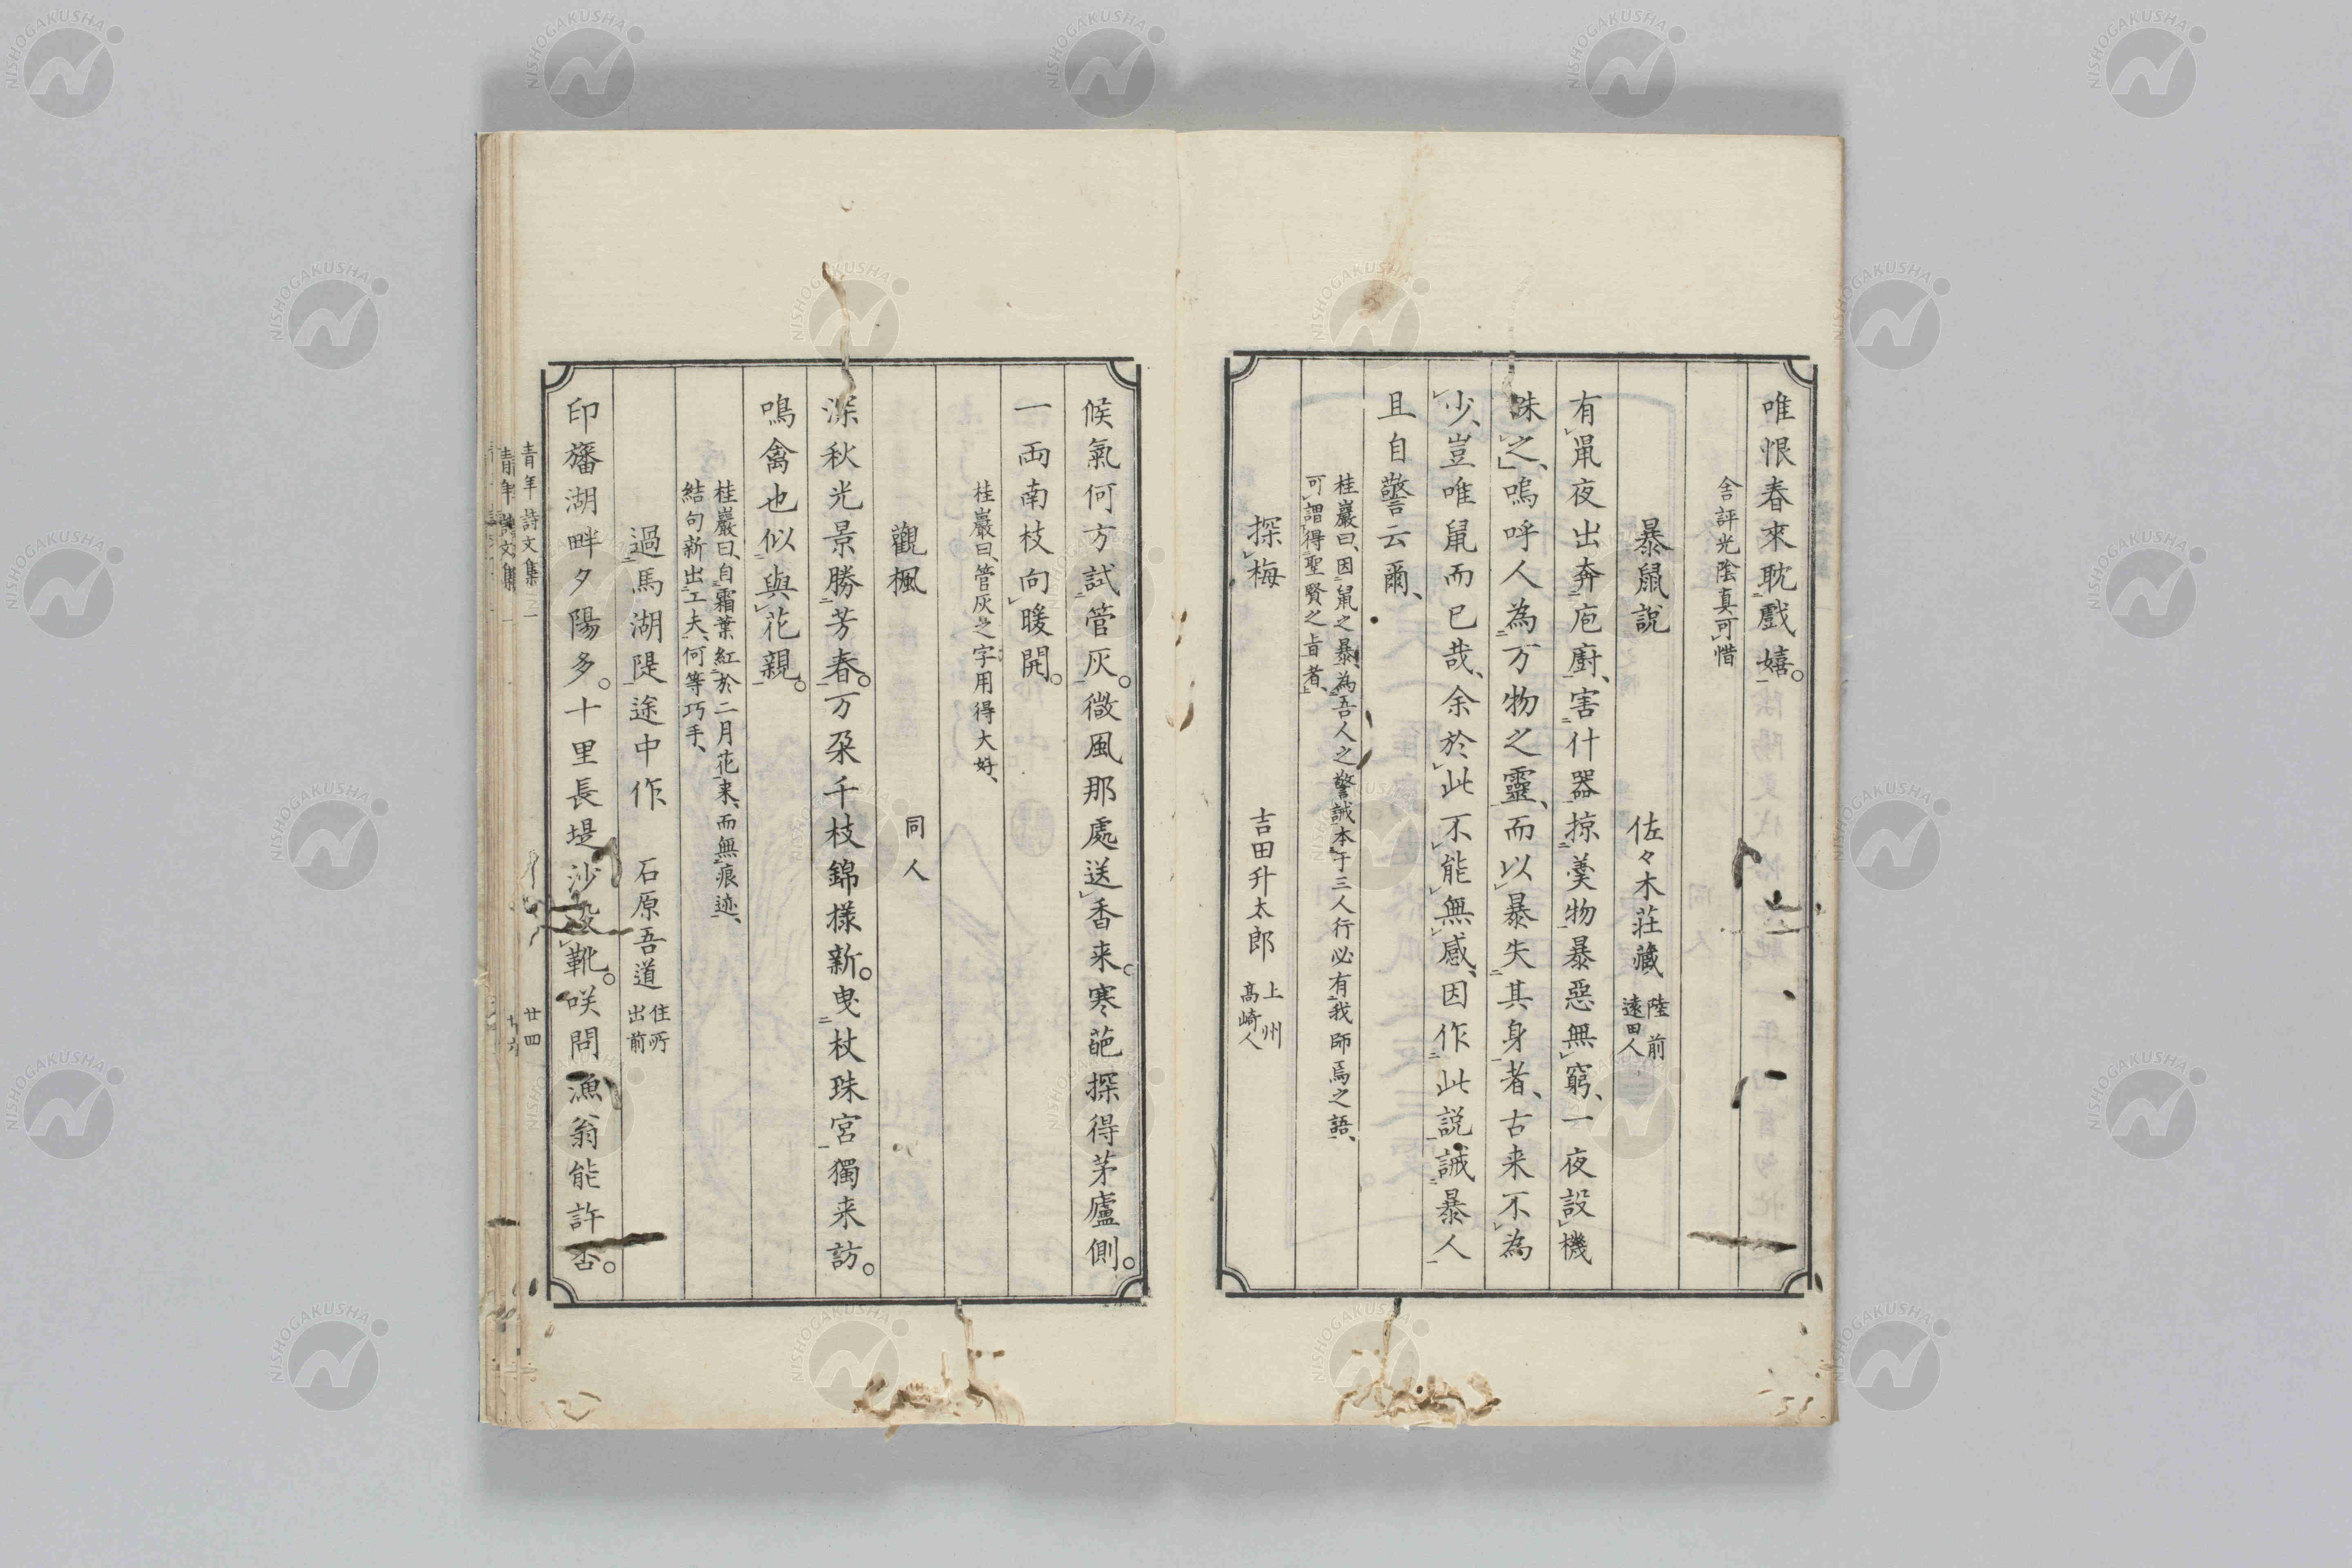 唯恨春來耽戲嬉。
舎評光陰真可惜
暴鼠説 佐々木荘藏 陸前遠田人
有鼠夜出奔庖廚、害什器掠羹物暴惡無窮、一夜設機
誅之、嗚呼人為万物之靈、而以暴失其身者、古来不為
少、豈唯鼠而已哉、余於此不能無感、因作此説誡暴人
且自警云爾、
桂巖曰、因鼠之暴、為吾人之警誡本于三人行必有我師焉之語、
可謂得聖賢之旨者、
探梅 吉田升太郎 上州高崎人
候氣何方試管灰。微風那處送香来。寒葩探得茅廬側。
一両南枝向暖開。
桂巖曰、管灰之字用得大好、
觀楓 同人
深秋光景勝芳春。万朶千枝錦様新。曳杖珠宮獨来訪。
鳴禽也似與花親。
桂巖曰、自霜葉紅於二月花来、而無痕迹、
結句新出工夫、何等巧手、
過馬湖隄途中作 石原吾道 住所出前
印旛湖畔夕陽多。十里長堤沙没靴。咲問漁翁能許否。
青年詩文集 廿四
NISHOGAKUSHA